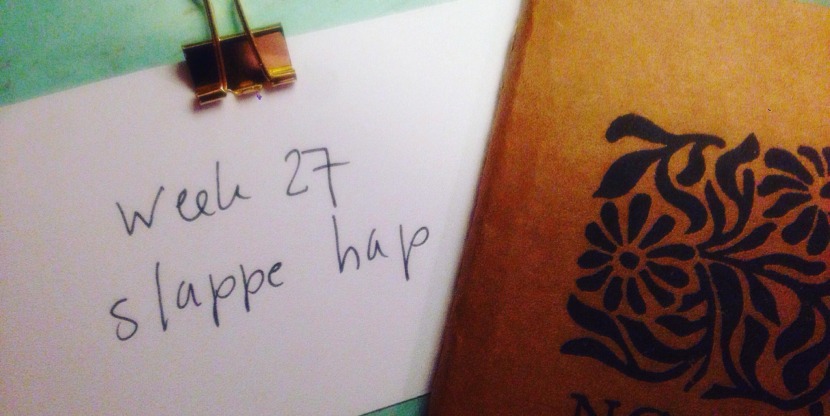 week 27
slappe hap